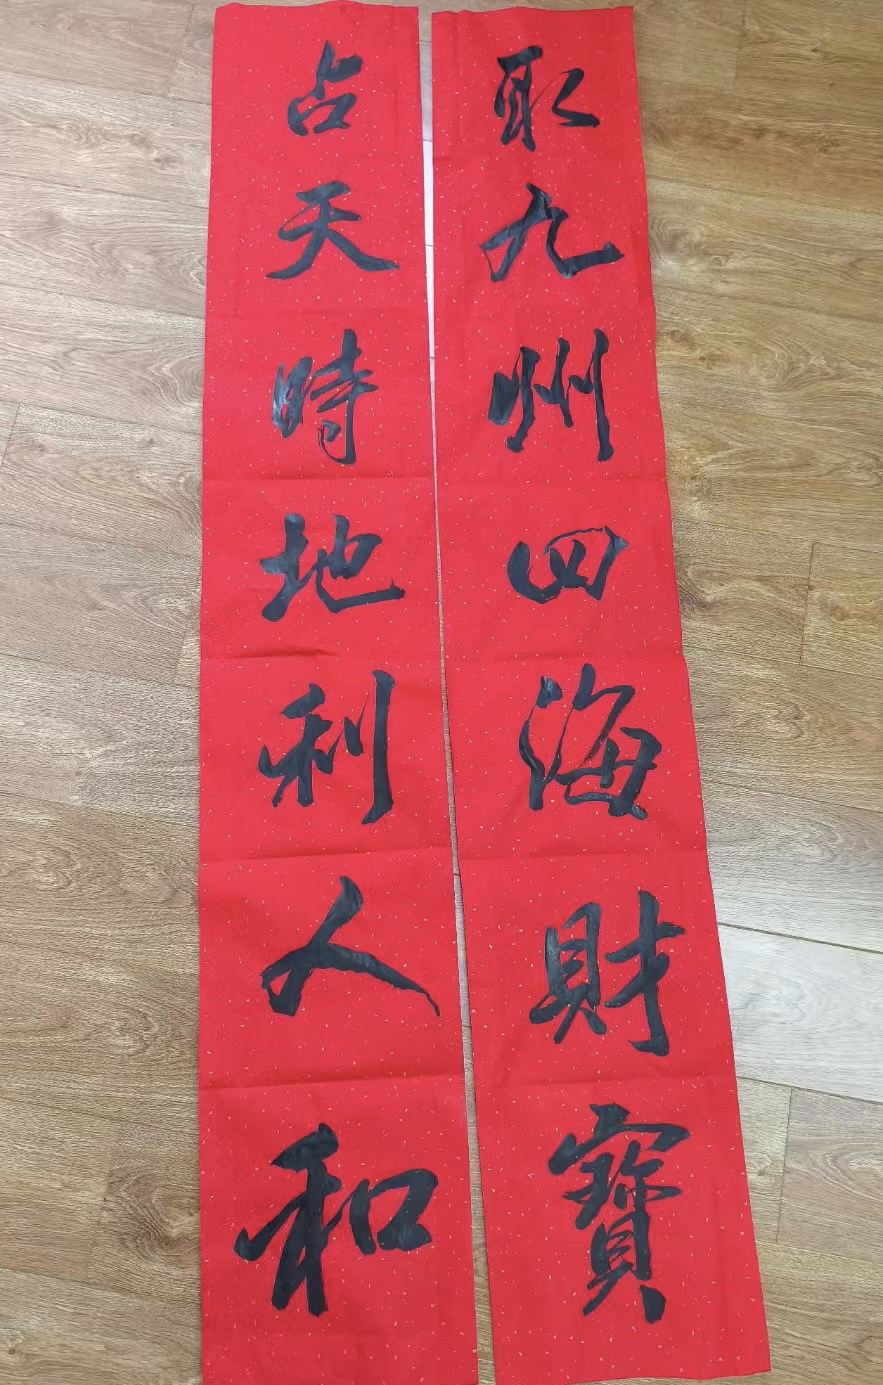 取九州四海財寶
占天時地利人和